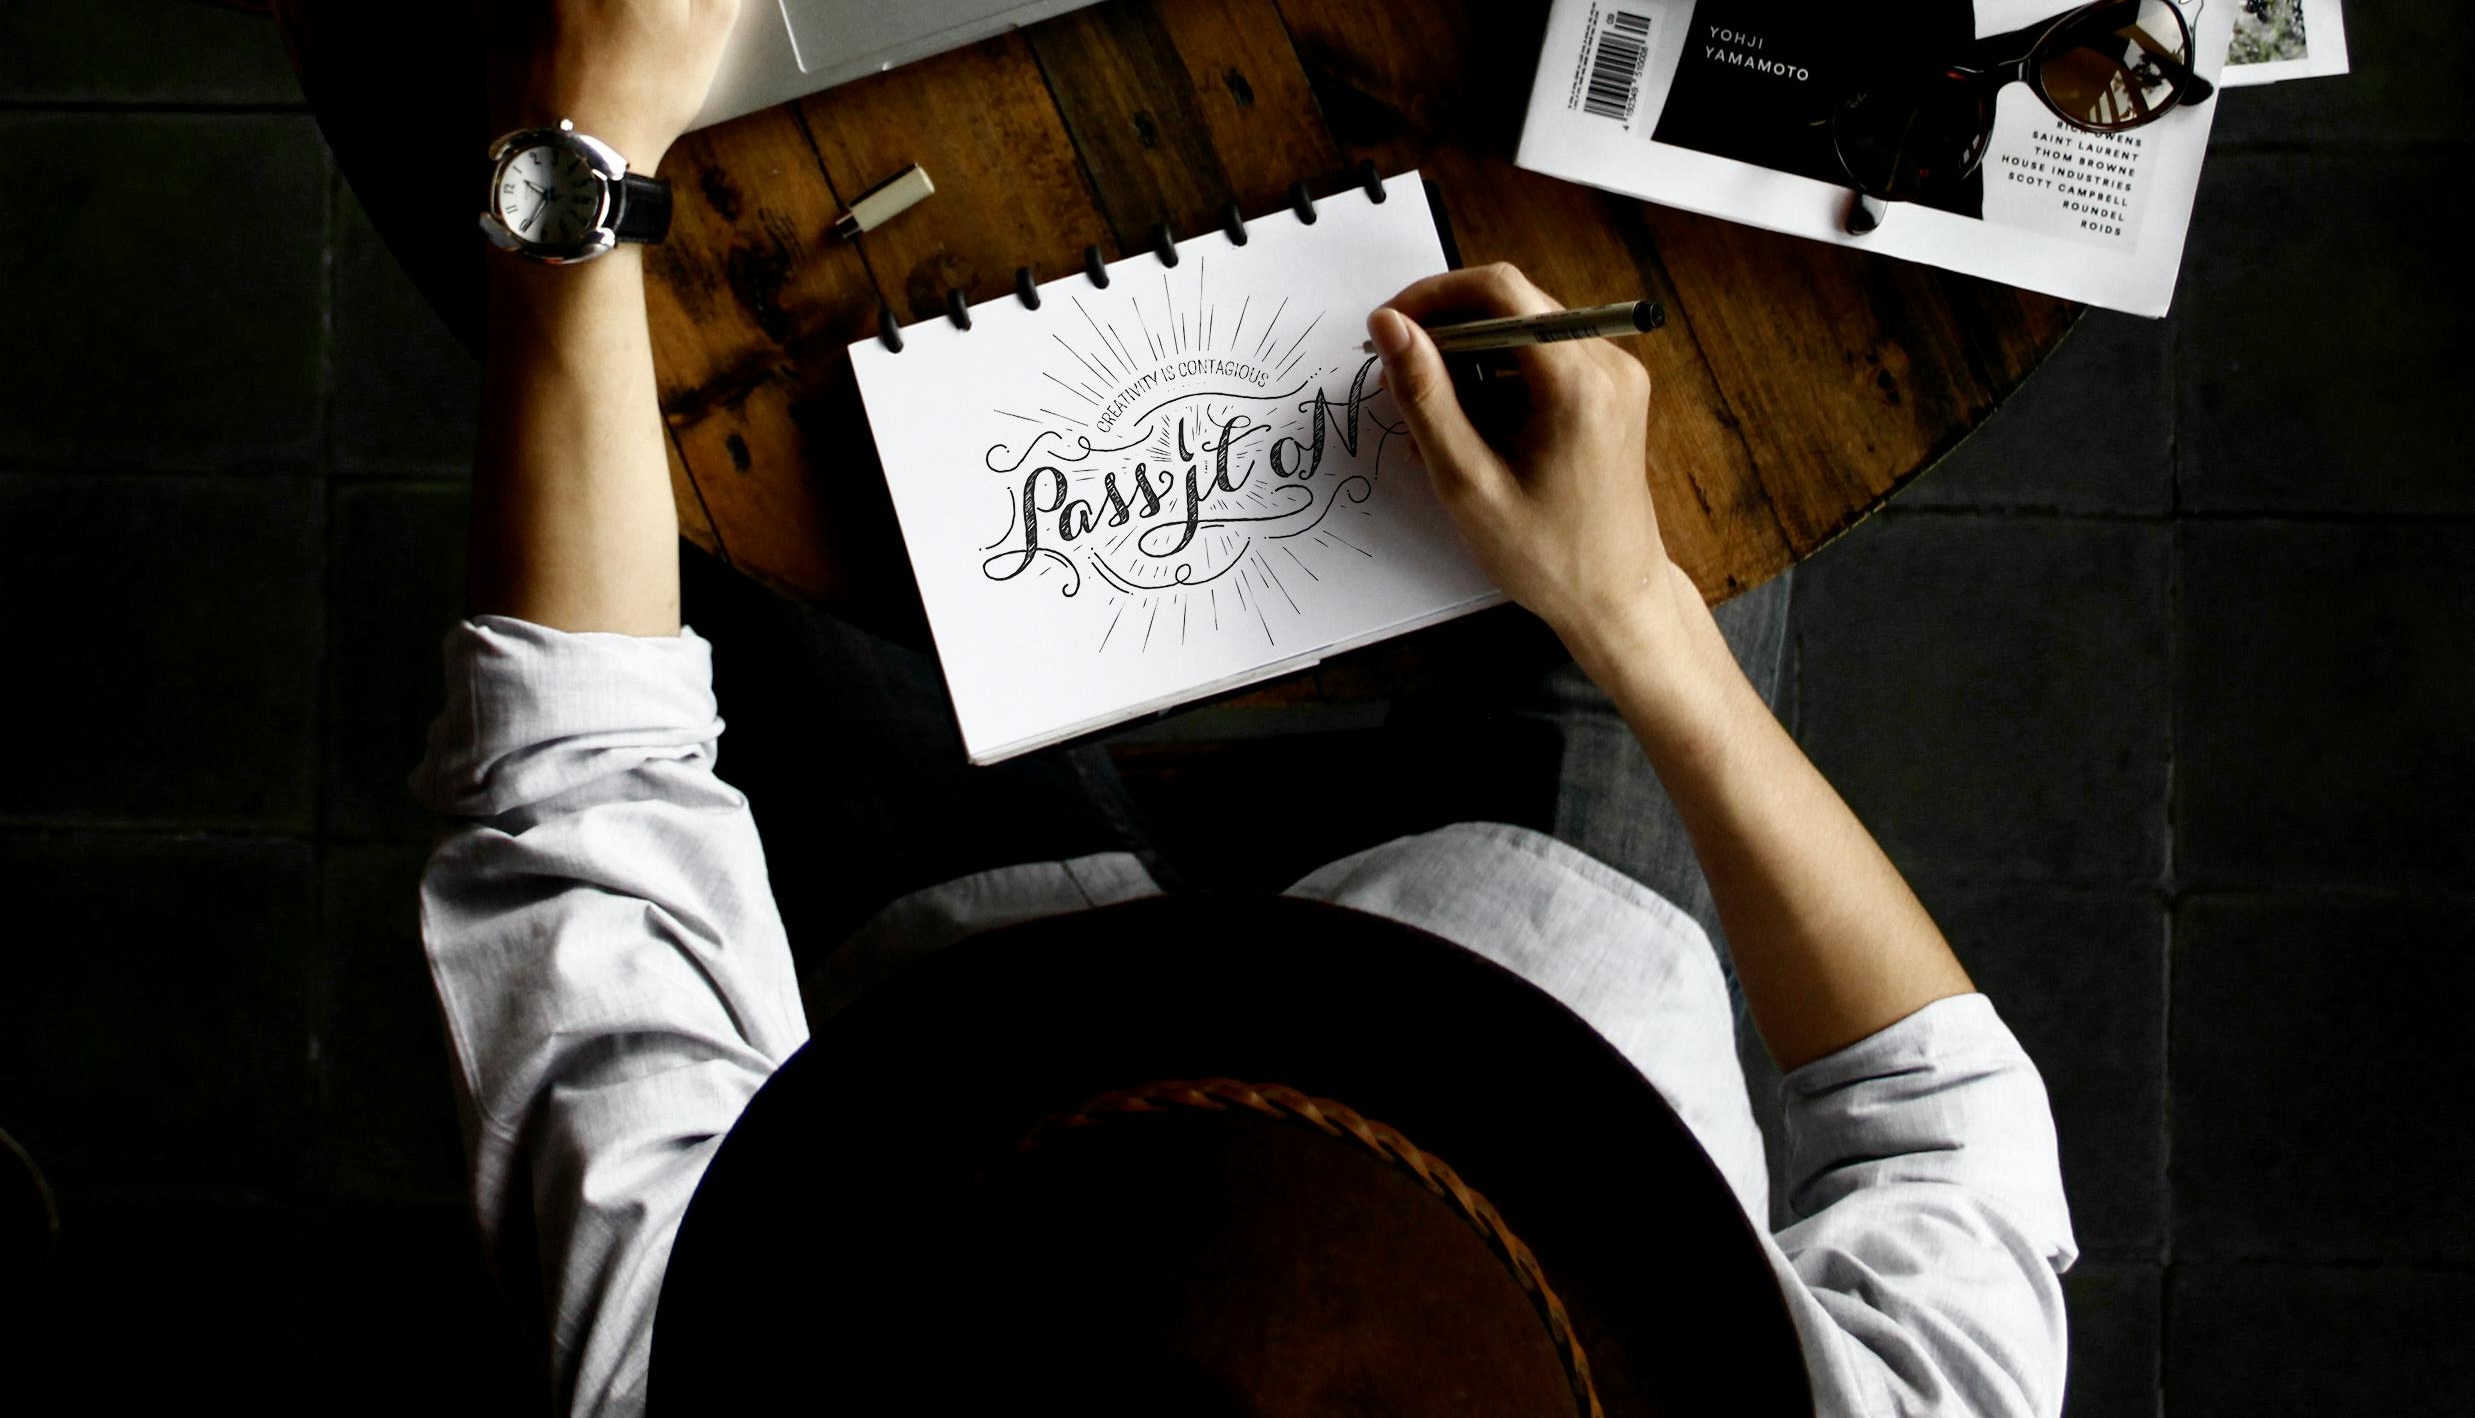 YOHJI
YAMAMOTO
RICK OWENS
SAINT LAURENT
THOM BROWNE
HOUSE INDUSTRIES
SCOTT CAMPBELL
ROUNDEL
ROIDS
CREATIVITY IS CONTAGIOUS
Pass it oN